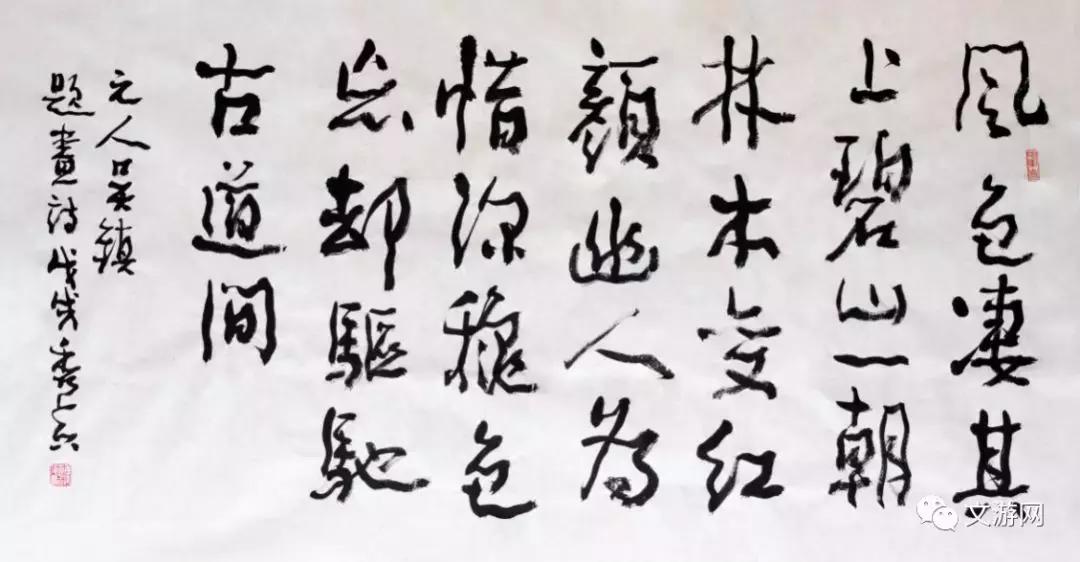 風色凄其
上碧山一朝
林木变紅
顏幽人為
惜深穐色
忘却驅馳
古道間
元人吴鎮
題畫詩戊戌
文游网